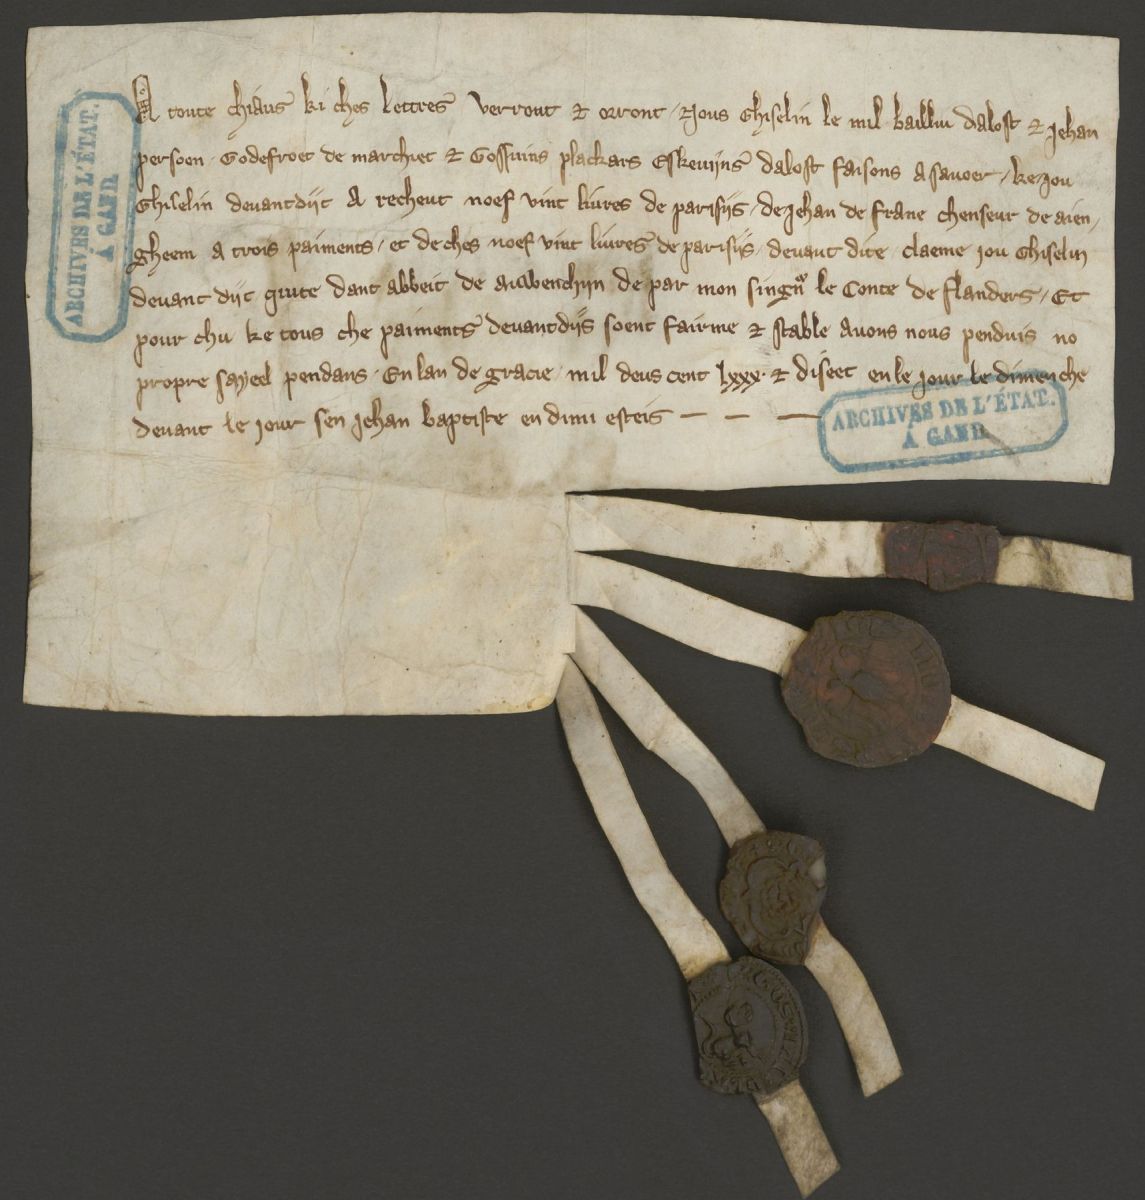 A toute chiaus ki ches lettres verront & orront · & Jous Ghiselin le mil baillu dalost & Jehan
persoen · Godefroet de marchiet & Gossuins plackars Eskevijns dalost faisons a savoer · ke jou
Ghiselin devantdijt a recheut noef vint livres de parisijs · de Jehan de frane chenseur de aien,
gheem a trois paiments · et de ches noef vint livres de parisijs · devant dite · claeme jou Ghiselin
devant dijt quite dant abbeit de auwenchijn de par mon singnor le Conte de flanders · Et
pour chu ke tous che paiments devantdijs soent fairme & stable Avons nous penduis no
propre sayeel pendans · En lan de gracie · mil deus cent lxxx · & diseet en le jour le dimenche
devant le jour sen Jehan baptiste en dimi esteis — — —
ARCHIVES DE L'ÉTAT.
A GAND
ARCHIVES DE L'ÉTAT.
A GAND